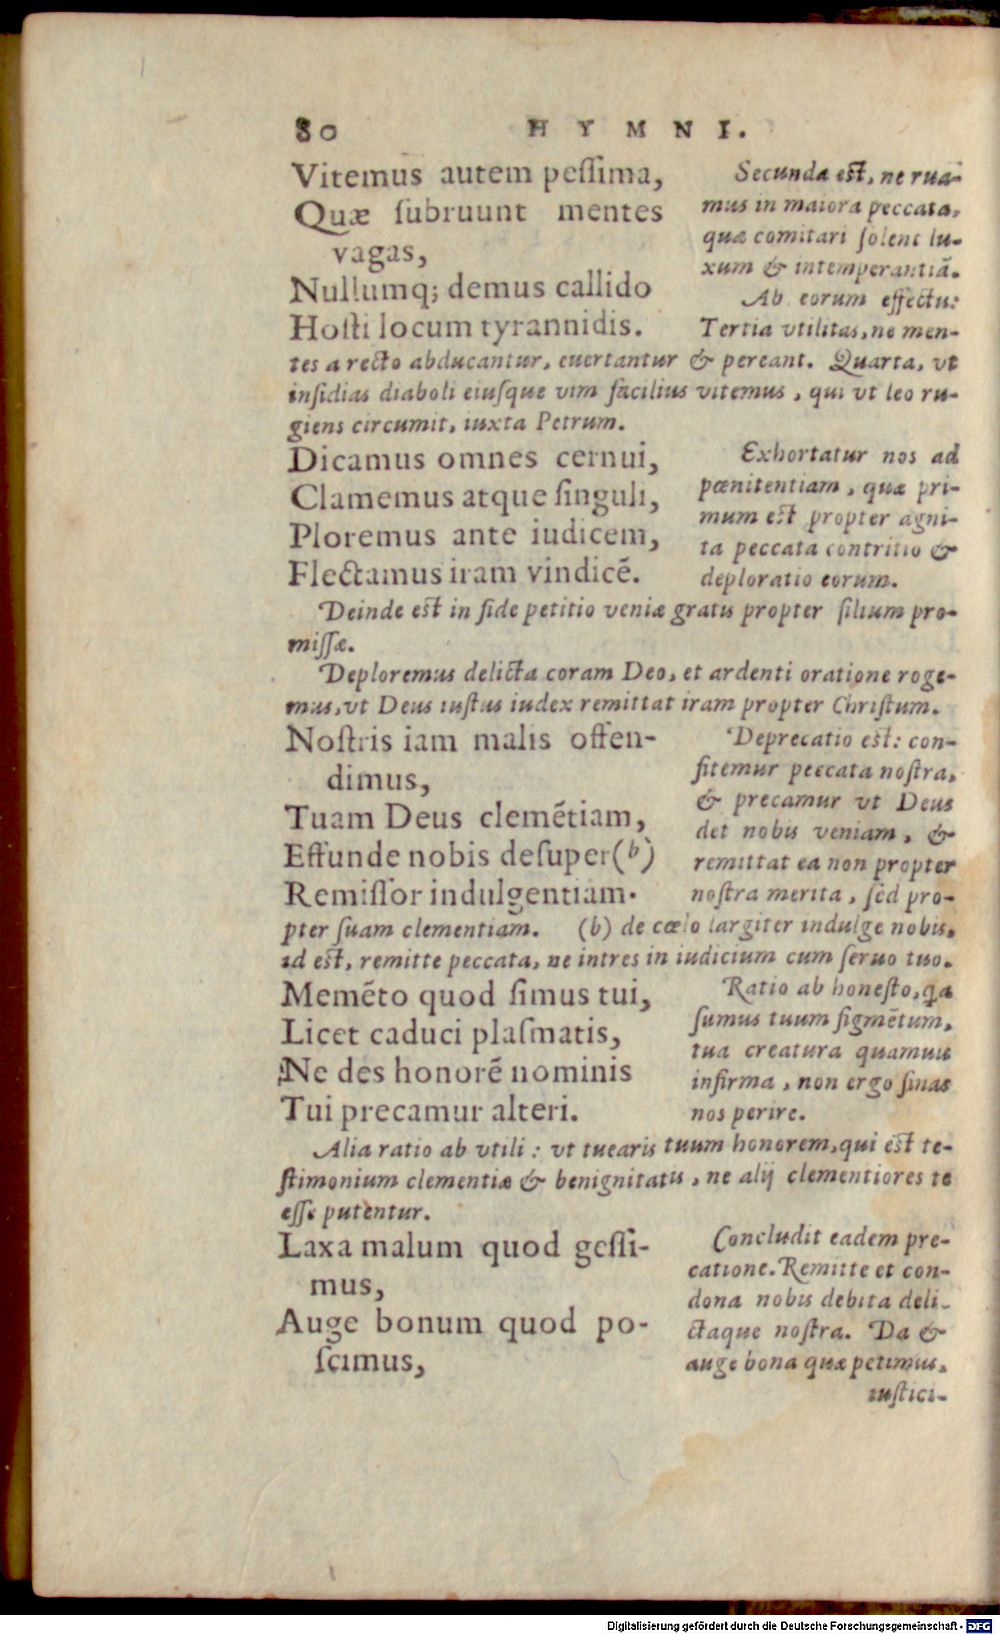 80 HYMNI.
Vitemus autem peſſima,
Quæ ſubruunt mentes
vagas,
Nullumq; demus callido
Hoſti locum tyrannidis.
Secunda est, ne rua-
mus in maiora peccata,
quæ comitari ſolent lu-
xum & intemperantiã.
Ab eorum effectu:
Tertia vtilitas, ne men-
tes a recto abducantur, euertantur & pereant. Quarta, vt
inſidias diaboli eiuſque vim facilius vitemus, qui vt leo ru-
giens circumit, iuxta Petrum.
Dicamus omnes cernui,
Clamemus atque ſinguli,
Ploremus ante iudicem,
Flectamus iram vindicẽ.
Exhortatur nos ad
pœnitentiam, quæ pri-
mum est propter agni-
ta peccata contritio &
deploratio eorum.
Deinde est in fide petitio veniæ gratis propter filium pro-
miſſæ.
Deploremus delicta coram Deo, et ardenti oratione roge-
mus, vt Deus iustus iudex remittat iram propter Chriſtum.
Noſtris iam malis offen-
dimus,
Tuam Deus clemẽtiam,
Effunde nobis deſuper(b)
Remiſſor indulgentiam.
Deprecatio est: con-
fitemur peccata noſtra,
& precamur vt Deus
det nobis veniam, &
remittat ea non propter
noſtra merita, ſed pro-
pter ſuam clementiam. (b) de cœlo largiter indulge nobis,
id est, remitte peccata, ne intres in iudicium cum ſeruo tuo.
Memẽto quod ſimus tui,
Licet caduci plaſmatis,
Ne des honorẽ nominis
Tui precamur alteri.
Ratio ab honeſto, qa
ſumus tuum figmẽtum,
tua creatura quamuis
infirma, non ergo ſinas
nos perire.
Alia ratio ab vtili: vt tuearis tuum honorem, qui est te-
ſtimonium clementiæ & benignitatis, ne alij clementiores te
eſſe putentur.
Laxa malum quod geſſi-
mus,
Auge bonum quod po-
ſcimus,
Concludit eadem pre-
catione. Remitte et con-
dona nobis debita deli-
ctaque noſtra. Da &
auge bona quæ petimus,
iuſtici-
Digitalisierung gefördert durch die Deutsche Forschungsgemeinschaft - DFG